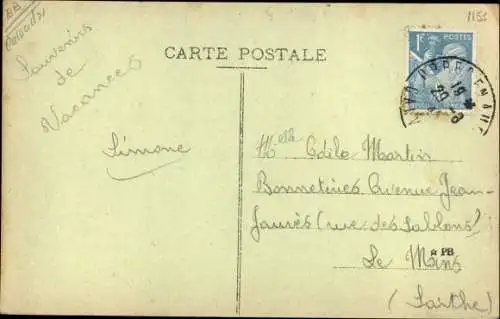 CARTE POSTALE
1F POSTES
Souvenirs
de
Vacances
Simone
Melle Odile Martin
Bonnetières Avenue Jean-
Jaurès (rue des Sablons)
Le Mans
PB
(Sarthe)